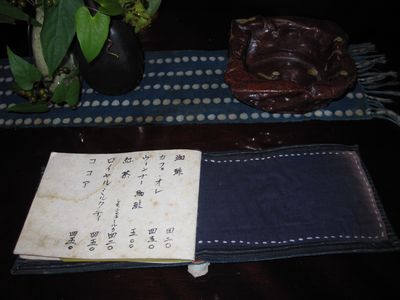 珈琲 四二〇
カフェ・オレ 四五〇
ウィンナー珈琲 五〇〇
紅茶 四二〇
ロイヤルミルクティ 四五〇
ココア 四五〇